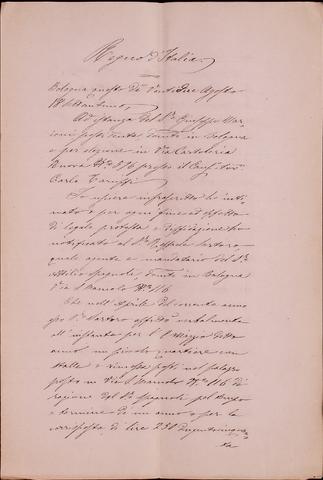 Regno d'Italia
Bologna questo dì Ventidue Agosto
18
Ad istanza del Sig. Giuseppe Mar
possidente domto in Bologna
e per elezione in Via Cartoleria
Nuova N.º 616 presso il
Carlo
Io usciere infrascritto ho inti
mato e per ogni fine ed effetto
di legale protesta e diffidazione ho
notificato al Sig. Raffaele Sartoro
quale agente e mandatario del Sig.
Attilio Spagnoli, domto in Bologna
Via S. Mamolo N.º 116
Che nell'Aprile del corrente anno
esso Sig. Sartoro affittò verbalmente
all'instante per l' 8 Maggio detto
anno un piccolo quartiere con
stalla e rimessa posti nel palazzo
posto in Via S. Mamolo N.º 116 di
ragione del Sig. Spagnoli pel tempo
e termine di un anno e per la
corrisposta di lire 250 duecentocinquan
ta